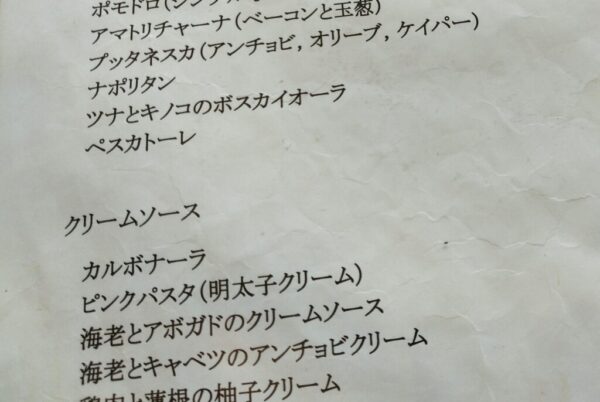 ポモドロ(シンプル
アマトリチャーナ(ベーコンと玉葱)
プッタネスカ(アンチョビ, オリーブ, ケイパー)
ナポリタン
ツナとキノコのボスカイオーラ
ペスカトーレ
クリームソース
カルボナーラ
ピンクパスタ(明太子クリーム)
海老とアボガドのクリームソース
海老とキャベツのアンチョビクリーム
鶏肉と蓮根の柚子クリーム